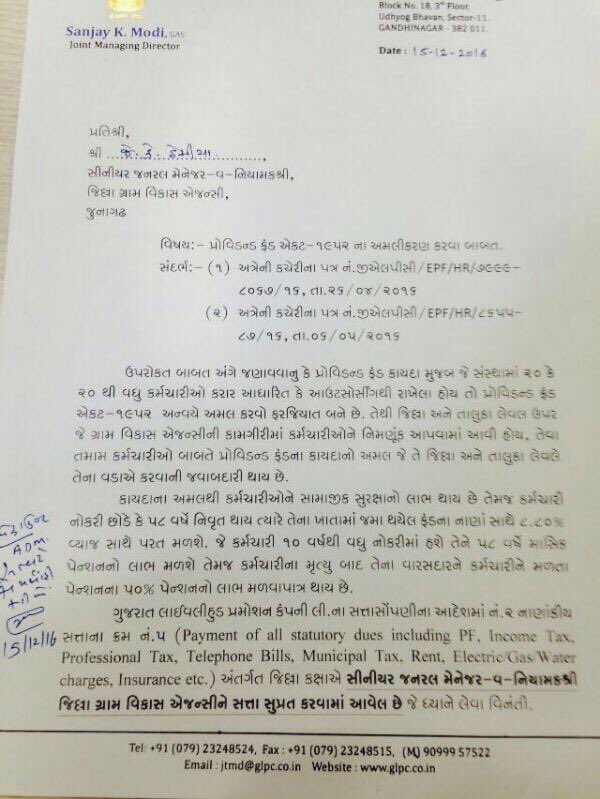 Sanjay K. Modi, GAS
Joint Managing Director
Block No. 18, 3rd Floor,
Udhyog Bhavan, Sector-11,
GANDHINAGAR - 382 011.
Date : 15-12-2016
પ્રતિશ્રી,
શ્રી જે. કે.
સીનીયર જનરલ મેનેજર-વ-નિયામકશ્રી,
જિલ્લા ગ્રામ વિકાસ એજન્સી,
જુનાગઢ
વિષય:- પ્રોવિડન્ડ ફંડ એકટ-૧૯૫૨ ના અમલીકરણ કરવા બાબત.
સંદર્ભ:- (૧) અત્રેની કચેરીના પત્ર નં.જીએલપીસી/EPF/HR/૭૯૯૯-
૮૦૬૭/૧૬, તા.૨૬/૦૪/૨૦૧૬
(૨) અત્રેની કચેરીના પત્ર નં.જીએલપીસી/EPF/HR/૮૬૫૫-
૮૭/૧૬, તા.૦૬/૦૫/૨૦૧૬
ઉપરોકત બાબત અંગે જણાવવાનુ કે પ્રોવિડન્ડ ફંડ કાયદા મુજબ જે સંસ્થામાં ૨૦ કે
૨૦ થી વધુ કર્મચારીઓ કરાર આધારિત કે આઉટસોર્સીંગથી રાખેલા હોય તો પ્રોવિડન્ડ ફંડ
એકટ-૧૯૫૨ અન્વયે અમલ કરવો ફરજિયાત બને છે. તેથી જિલ્લા અને તાલુકા લેવલ ઉપર
જે ગ્રામ વિકાસ એજન્સીની કામગીરીમાં કર્મચારીઓને નિમણૂંક આપવામાં આવી હોય, તેવા
તમામ કર્મચારીઓ બાબતે પ્રોવિડન્ડ ફંડના કાયદાનો અમલ જે તે જિલ્લા અને તાલુકા લેવલે
તેના વડાએ કરવાની જવાબદારી થાય છે.
કાયદાના અમલથી કર્મચારીઓને સામાજીક સુરક્ષાનો લાભ થાય છે તેમજ કર્મચારી
નોકરી છોડે કે ૫૮ વર્ષે નિવૃત થાય ત્યારે તેના ખાતામાં જમા થયેલ ફંડના નાણાં સાથે ૮.૮૦%
વ્યાજ સાથે પરત મળશે. જે કર્મચારી ૧૦ વર્ષથી વધુ નોકરીમાં હશે તેને ૫૮ વર્ષે માસિક
પેન્શનનો લાભ મળશે તેમજ કર્મચારીના મૃત્યુ બાદ તેના વારસદારને કર્મચારીને મળતા
પેન્શનના ૫૦% પેન્શનનો લાભ મળવાપાત્ર થાય છે.
ADM.
15/12/16
ગુજરાત લાઈવલીહુડ પ્રમોશન કંપની લી.ના સત્તાસોંપણીના આદેશમાં નં.૨ નાણાંકીય
સત્તાના ક્રમ નં.૫ (Payment of all statutory dues including PF, Income Tax,
Professional Tax, Telephone Bills, Municipal Tax, Rent, Electric/Gas/Water
charges, Insurance etc.) અંતર્ગત જિલ્લા કક્ષાએ સીનીયર જનરલ મેનેજર-વ-નિયામકશ્રી
જિલ્લા ગ્રામ વિકાસ એજન્સીને સત્તા સુપ્રત કરવામાં આવેલ છે જે ધ્યાને લેવા વિનંતી.
Tel: +91 (079) 23248524, Fax : +91 (079) 23248515, (M) 90999 57522
Email : jtmd@glpc.co.in Website : www.glpc.co.in